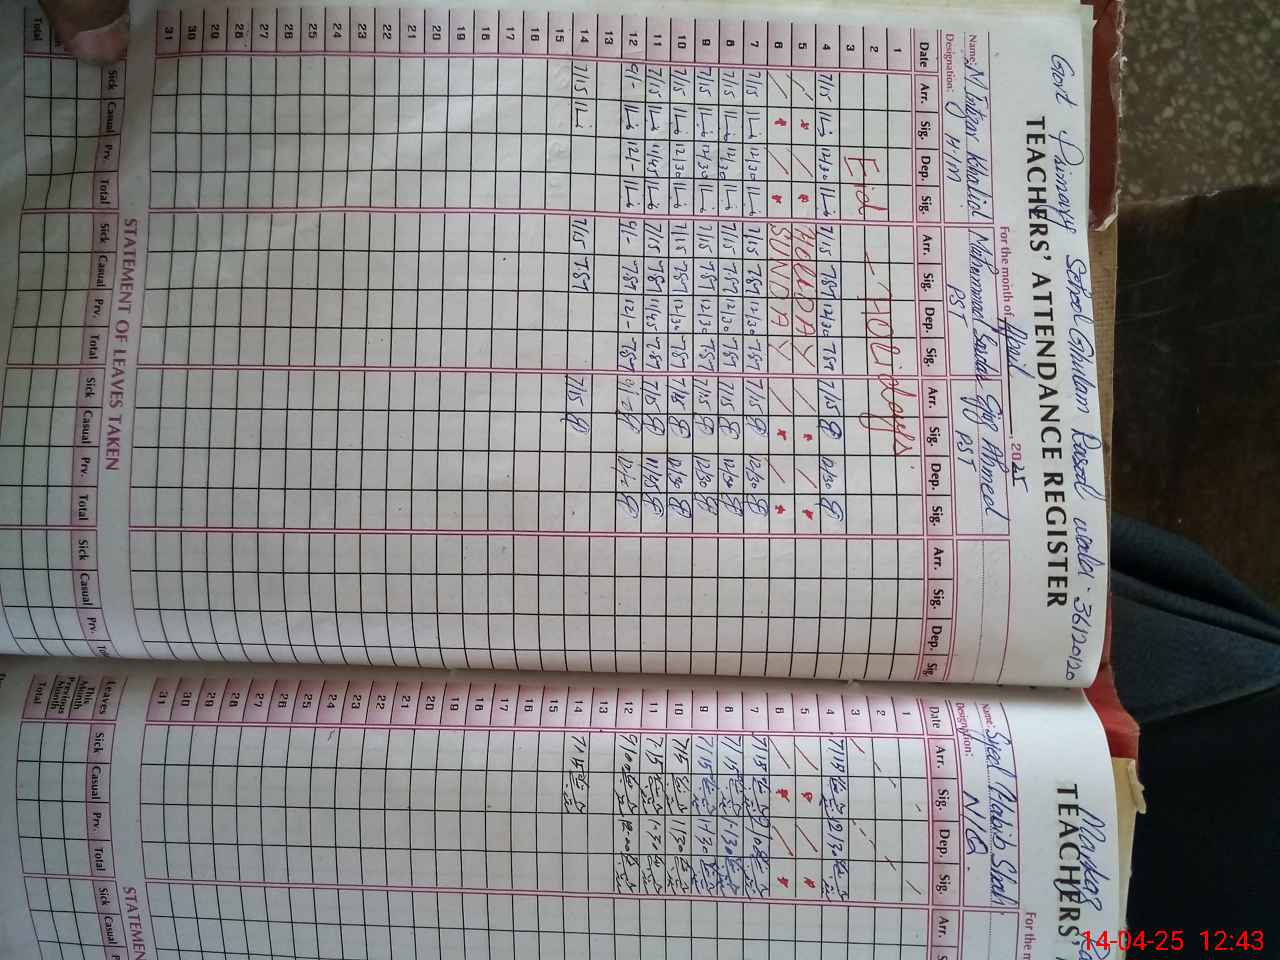 Govt Primary School Ghulam Rasool wala. 36120120
TEACHERS' ATTENDANCE REGISTER
For the month of April, 2025
Name: M Intizar Khaliol Muhammad Sarfar Ejaz Ahmeed
Designation: H-1M PST PST
Date Arr. Sig. Dep. Sig. Arr. Sig. Dep. Sig. Arr. Sig. Dep. Sig. Arr. Sig. Dep. Sig
1
2 Eid - HOLidays
3
4 7/15 12/30 7/15 787 12/30 787 7/15 12/30
5 HOLIDAY
6 SUNDAY
7 7/15 12/30 7/15 787 12/30 787 7/15 12/30
8 7/15 12/30 7/15 787 12/30 787 7/15 12/30
9 7/15 12/30 7/15 787 12/30 787 7/15 12/30
10 7/15 12/30 7/15 787 12/30 787 7/15 12/30
11 7/15 11/45 7/15 787 11/45 787 7/15 11/45
12 9/- 12/- 9/- 787 12/- 787 9/- 12/-
13
14 7/15 7/15 787 7/15
15
16
17
18
19
20
21
22
23
24
25
26
27
28
29
30
31
STATEMENT OF LEAVES TAKEN
Sick Casual Prv. Total Sick Casual Prv. Total Sick Casual Prv. Total Sick Casual Prv.
Total
Markaz
TEACHERS'
For the m
Name: Syed Habib Shah
Designation: N/Q.
Date Arr. Sig. Dep. Sig. Arr.
1
2
3
4 7/15 12/30
5
6
7 7/15
8 7/15 1-30
9 7/15 1-30
10 7/15 1/30
11 7-15 1-30
12 9/00 12-00
13
14 7/15
15
16
17
18
19
20
21
22
23
24
25
26
27
28
29
30
31
STATEMEN
Leaves Sick Casual Prv. Total Sick Casual
This Month
Previous Month
Total
14-04-25 12:43